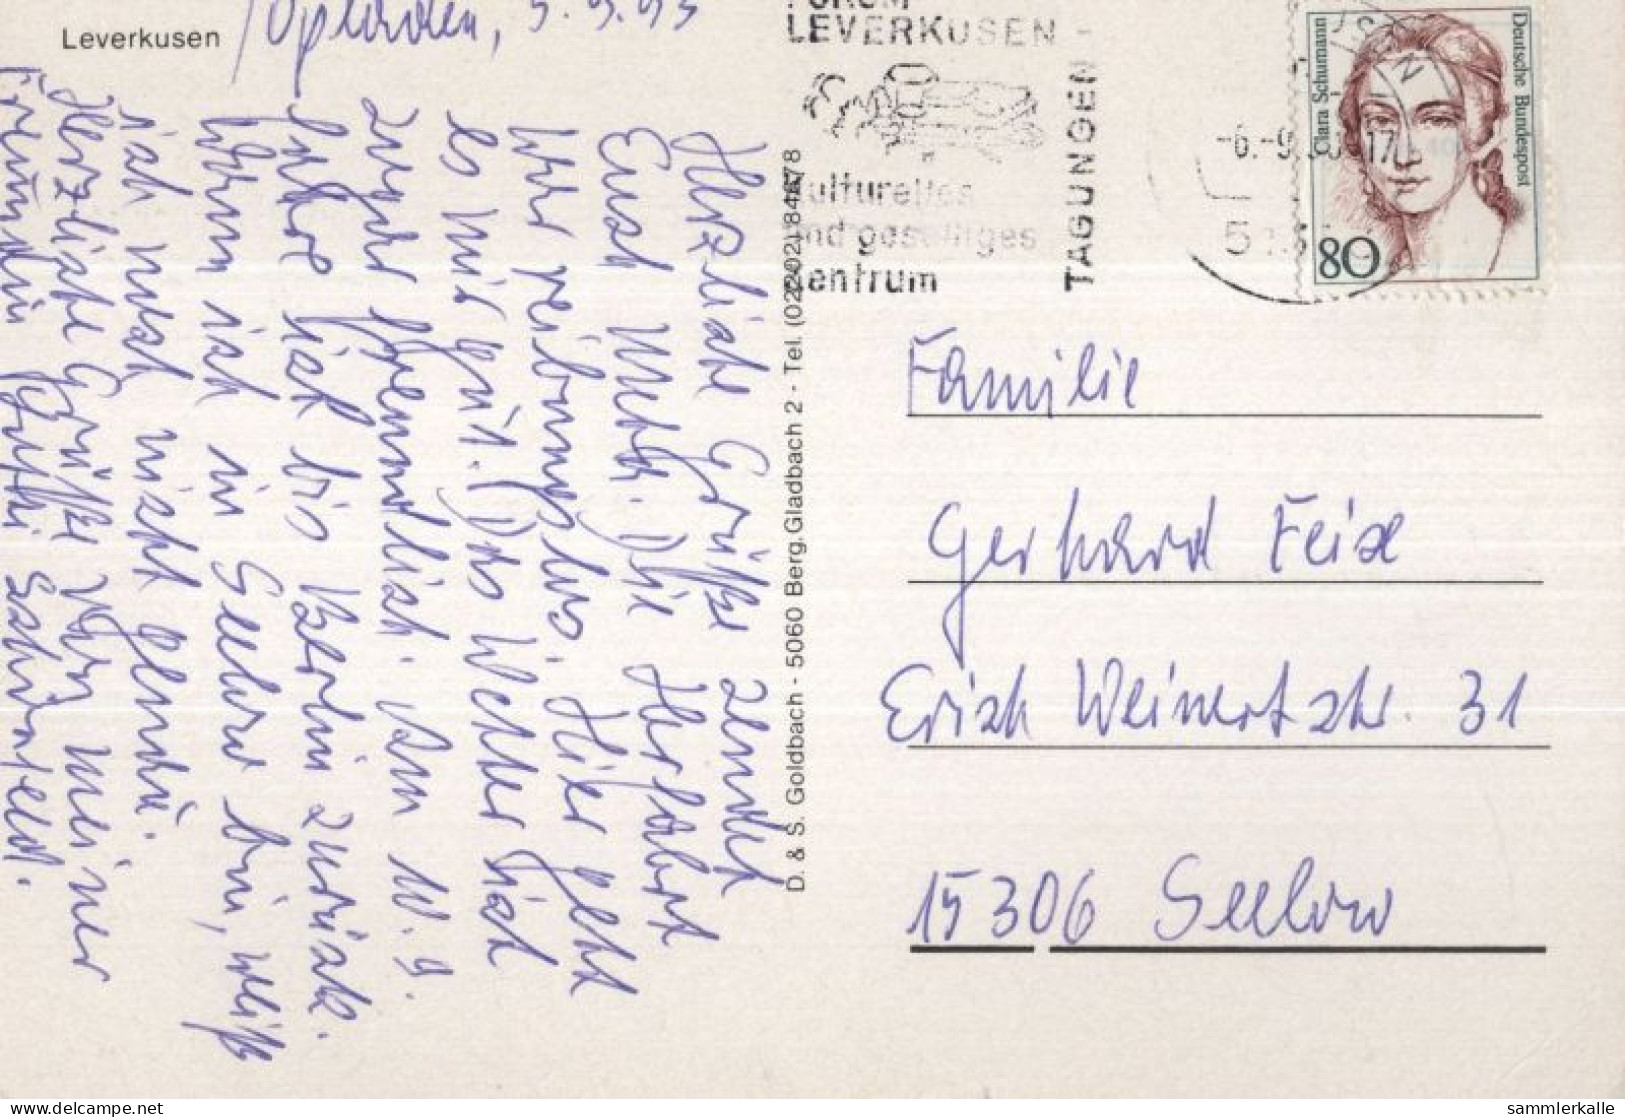 Leverkusen
/Opladen, 5.9.93
Herzliche Grüße sendet
Euch Mutti. Die Herfahrt
war reibungslos. Hier geht
es mir gut. Das Wetter ist
sogar freundlich. Am 10.9.
fahre ich bis Berlin zurück.
Wann ich in Seelow bin, weiß
ich noch nicht genau.
Herzliche Grüße von meiner
Freundin
D. & S. Goldbach - 5060 Berg.Gladbach 2 - Tel. (02202) 84878
FORUM
LEVERKUSEN -
TAGUNGEN
kulturelles
und geselliges
Zentrum
-6.-9. 17
Clara Schumann
Deutsche Bundespost
80
Familie
Gerhard Feix
Erich Weinertstr. 31
15306 Seelow
sammlerkalle
delcampe.net